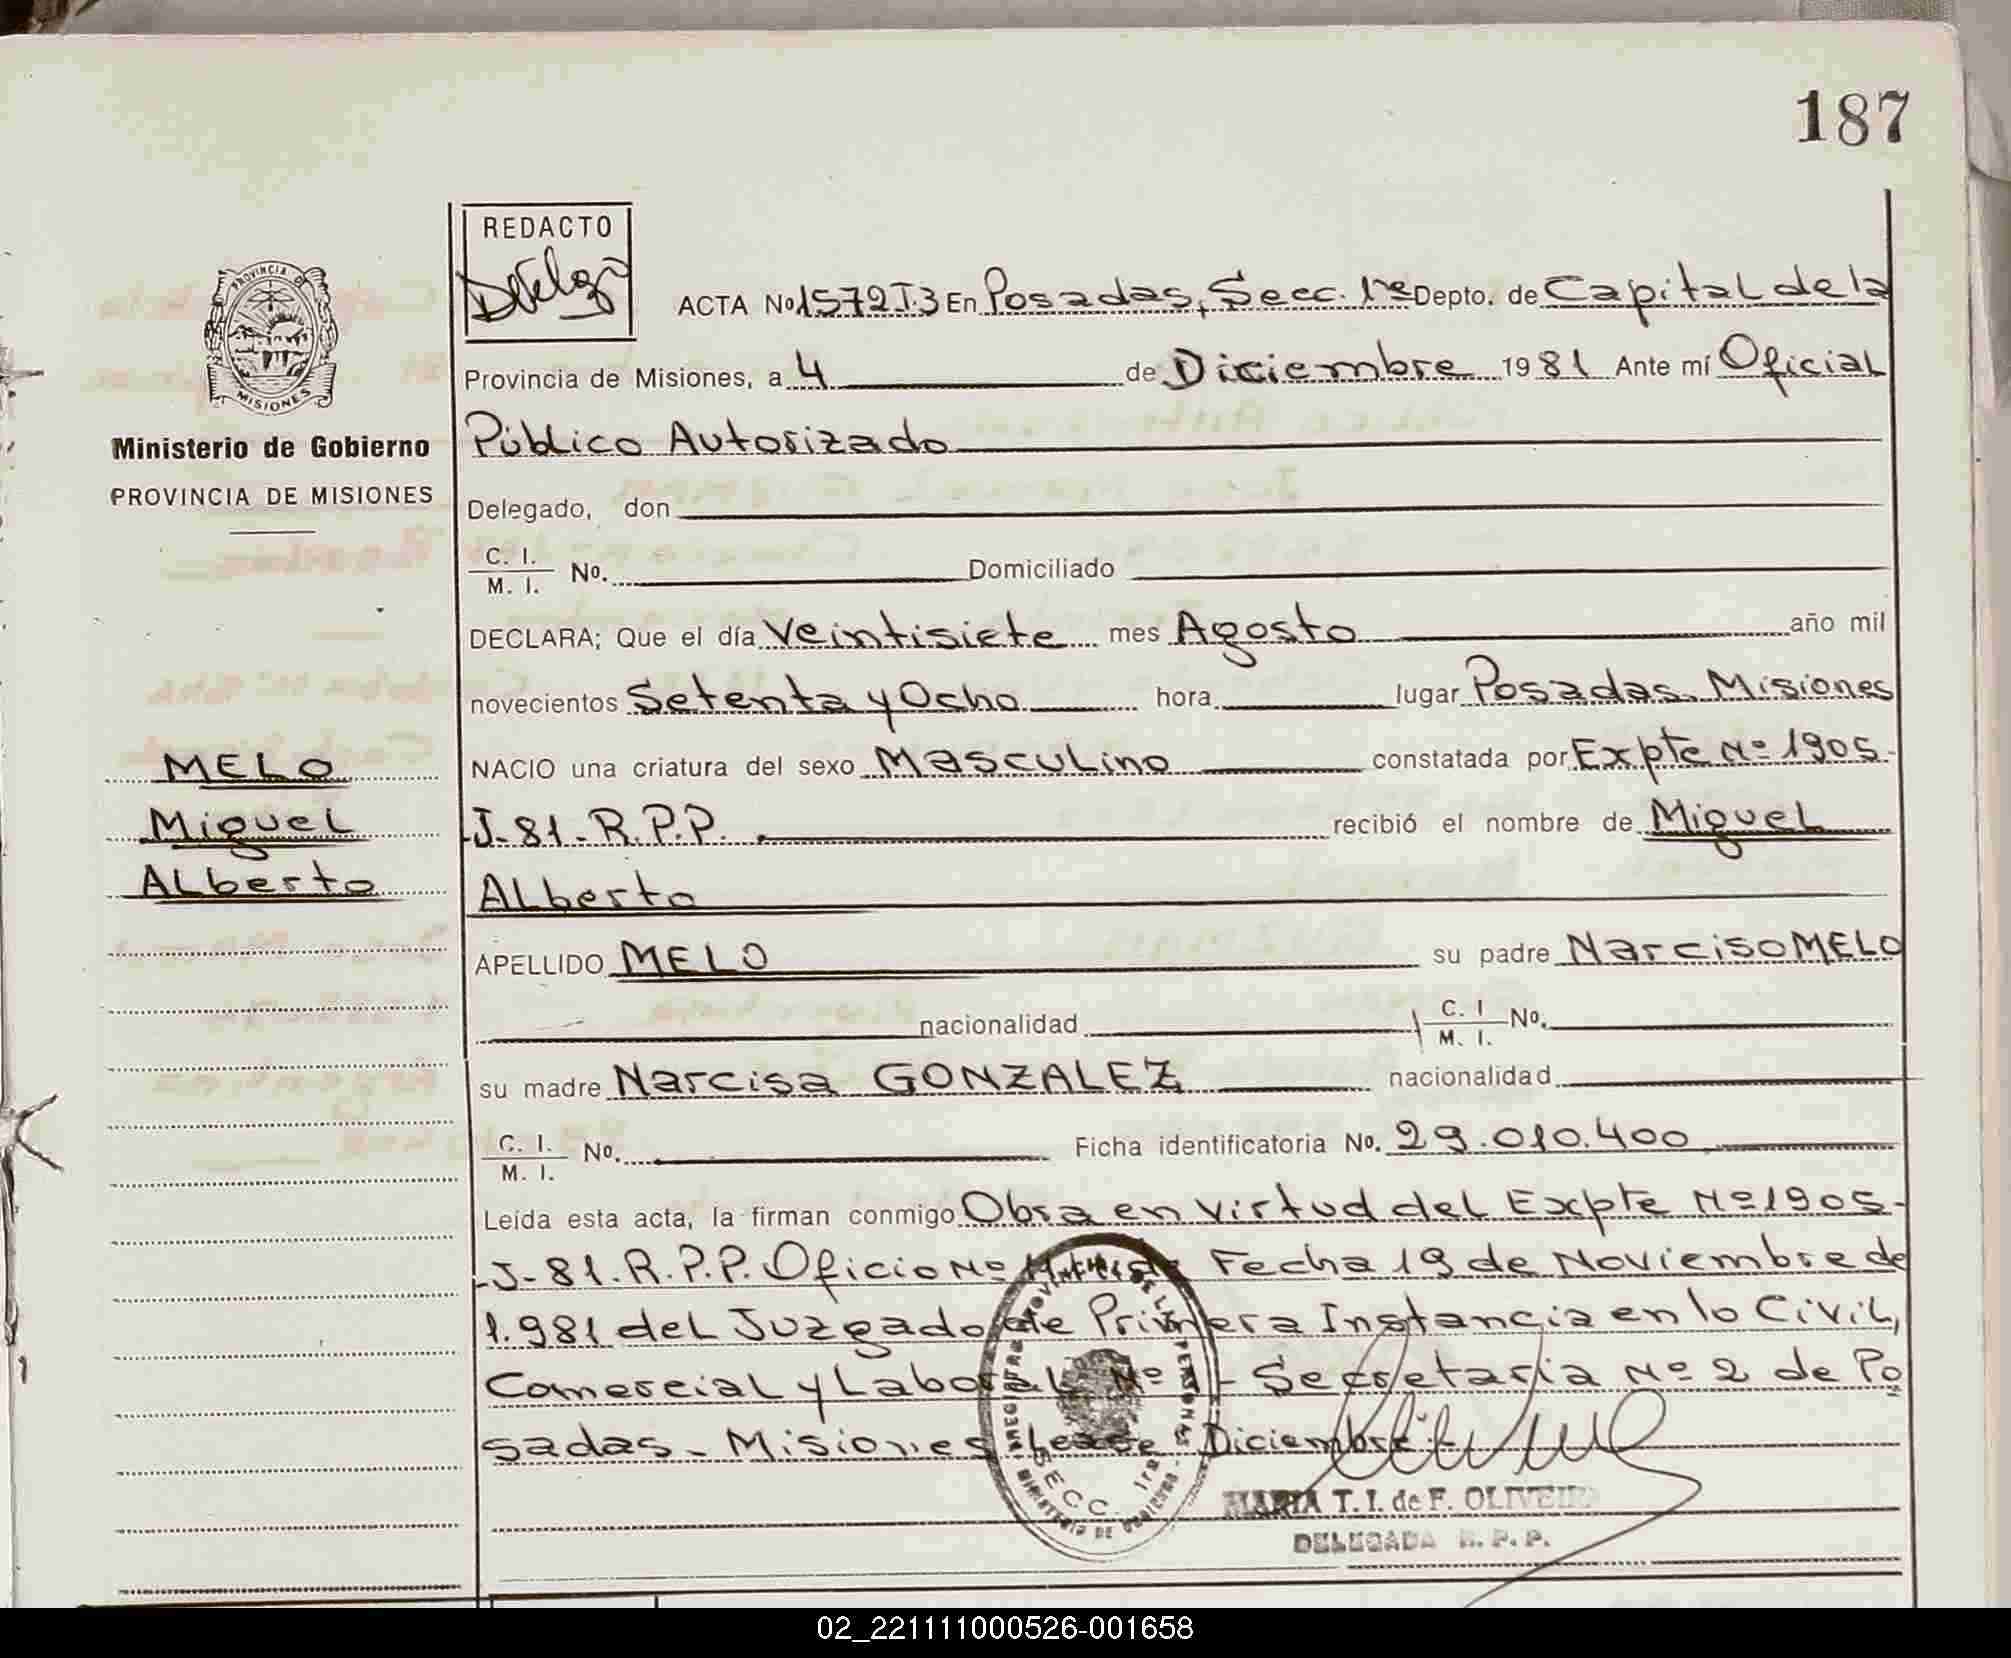 187
REDACTO
PROVINCIA DE
MISIONES
Ministerio de Gobierno
PROVINCIA DE MISIONES
MELO
Miguel
Alberto
ACTA No 1572 T.3 En Posadas, Secc. 1ª Depto. de Capital de la
Provincia de Misiones, a 4 de Diciembre 1981 Ante mí Oficial
Público Autorizado
Delegado, don
C. I. M. I. No. Domiciliado
DECLARA; Que el día Veintisiete mes Agosto año mil
novecientos Setenta y Ocho hora lugar Posadas. Misiones
NACIO una criatura del sexo Masculino constatada por Expte Nº 1905-
J-81-R.P.P. recibió el nombre de Miguel
Alberto
APELLIDO MELO su padre Narciso MELO
nacionalidad C. I M. I. No.
su madre Narcisa GONZALEZ nacionalidad
C. I. M. I. No. Ficha identificatoria No. 29.010.400
Leída esta acta, la firman conmigo Obra en virtud del Expte Nº 1905-
-J-81.R.P.P. Oficio Nº Fecha 19 de Noviembre de
1.981 del Juzgado de Primera Instancia en lo Civil,
Comercial y Laboral Nº - Secretaria Nº 2 de Po
sadas - Misiones Diciembre
SECC. 1ra
MARIA T. I. de F. OLIVEIRA
DELEGADA R. P. P.
02_221111000526-001658